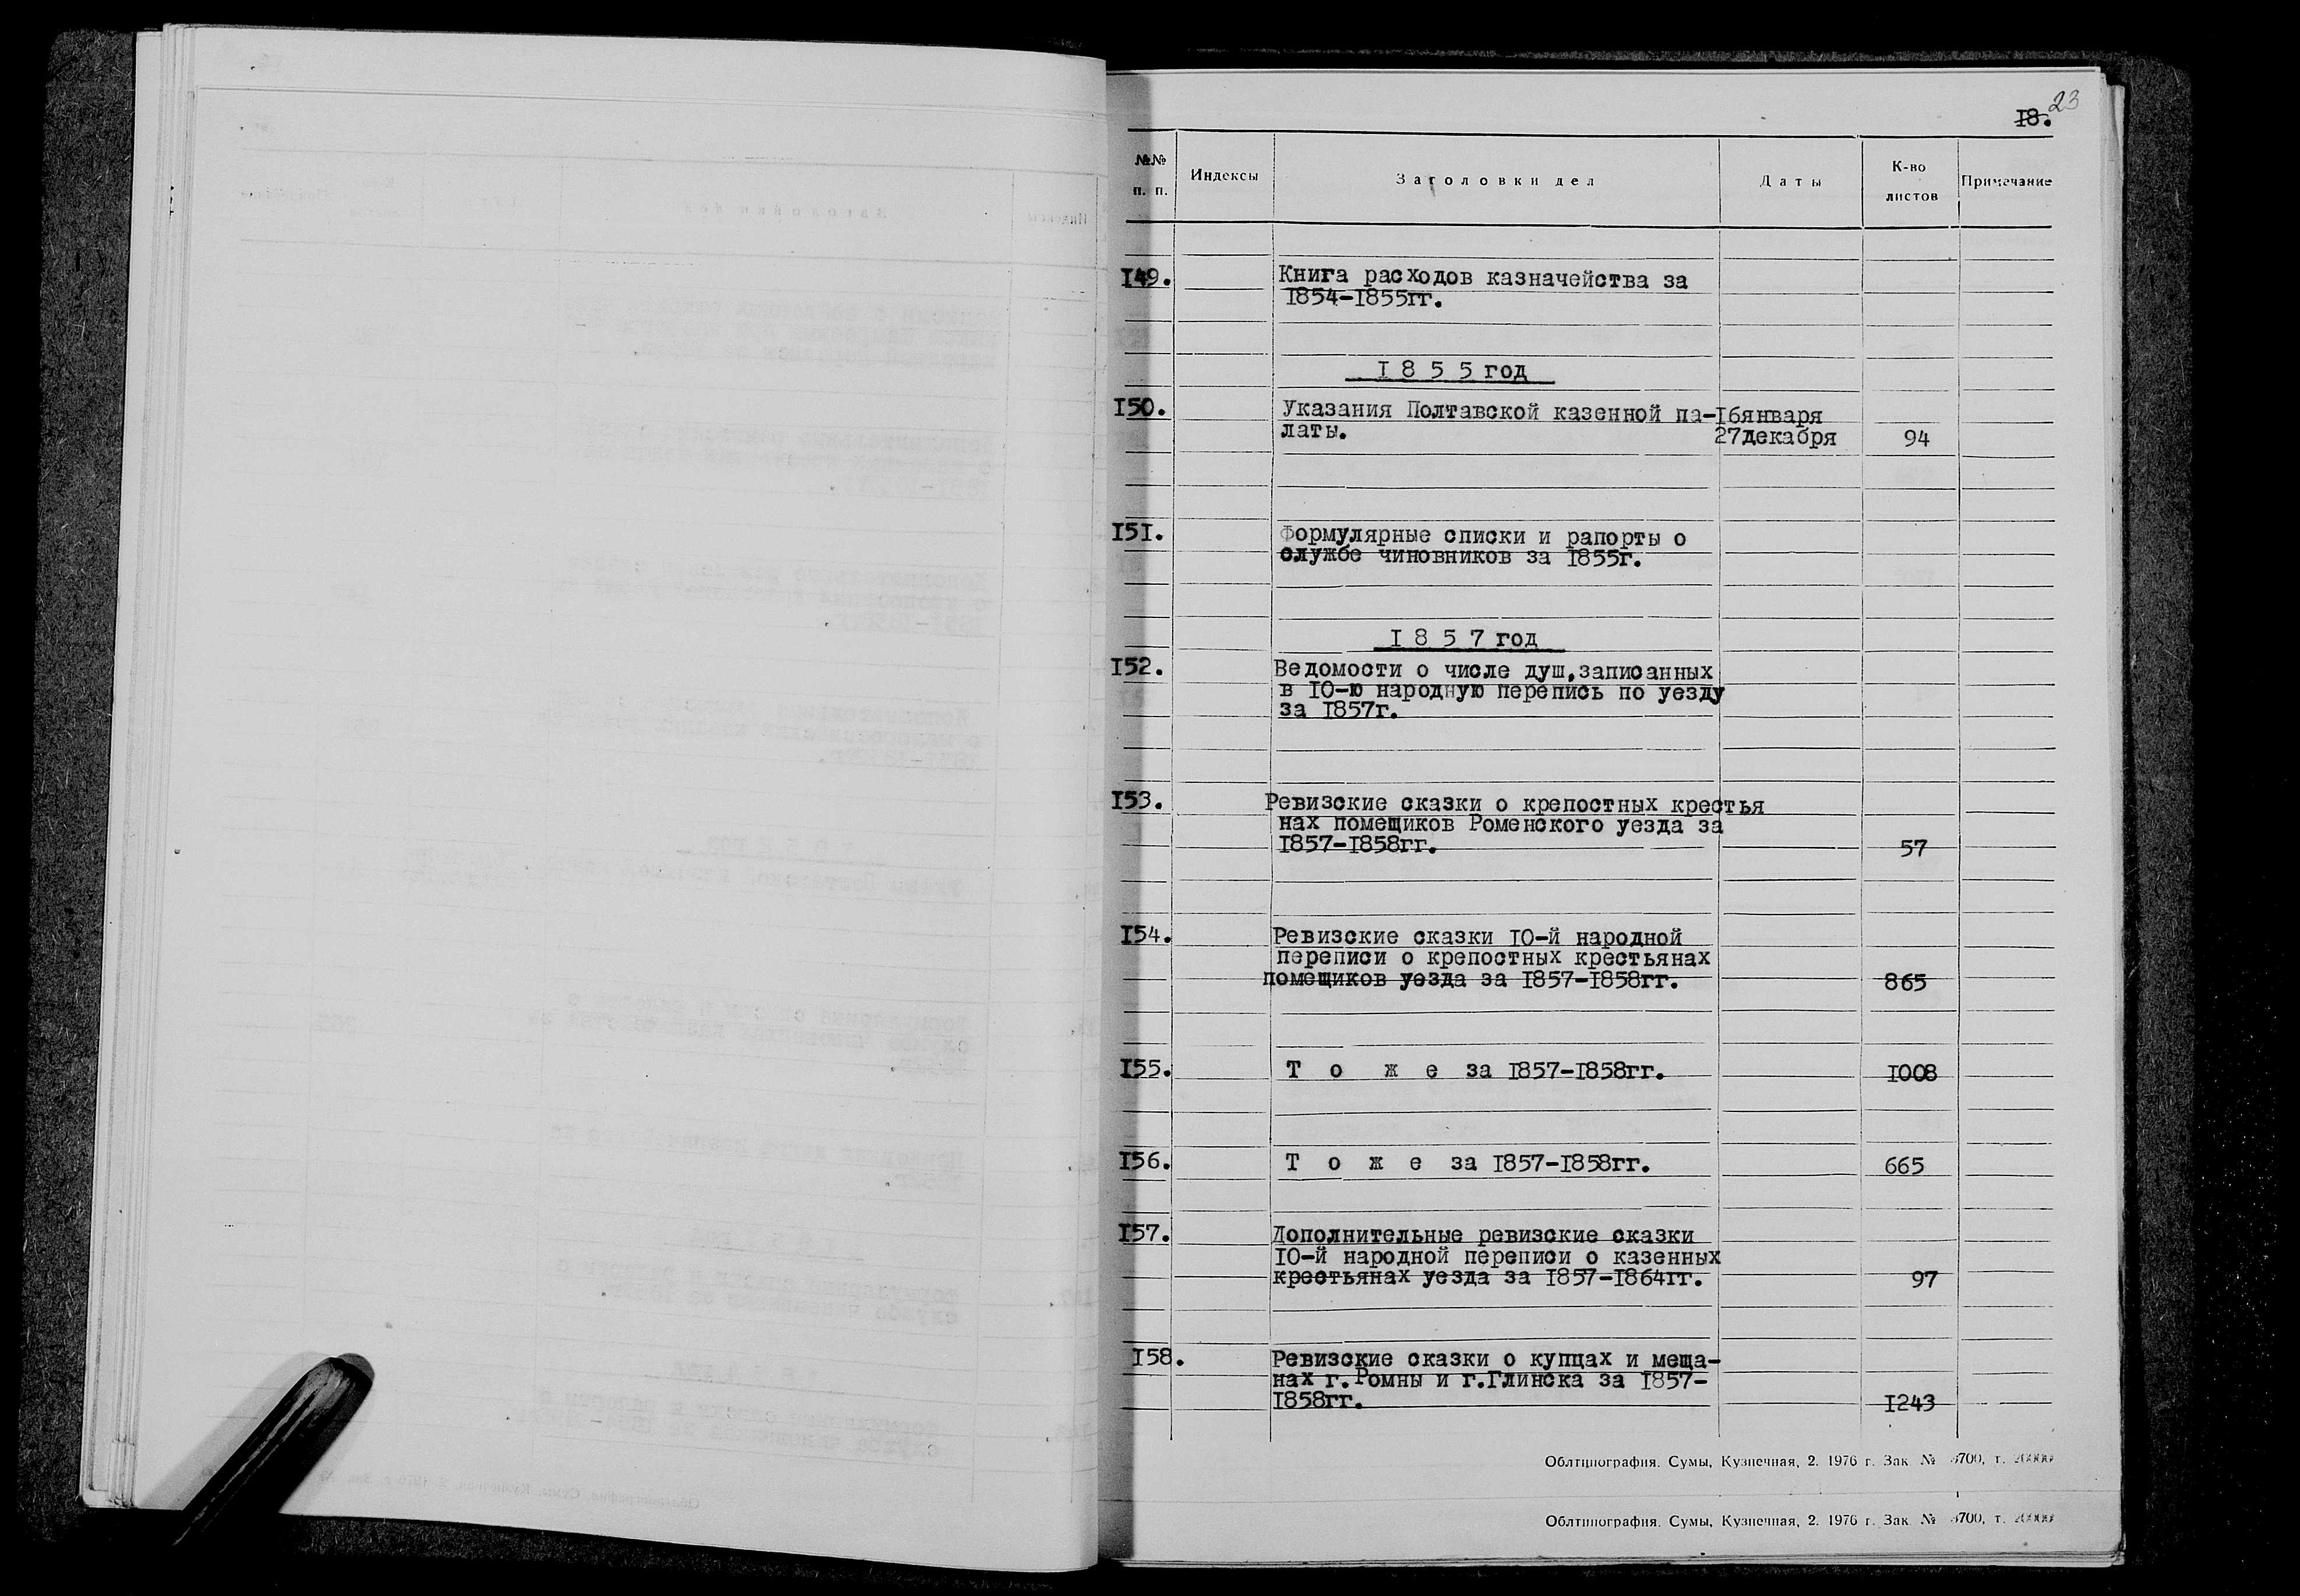 23
18.
№№ п. п.
Индексы
Заголовки дел
Даты
К-во листов
Примечание
149. Книга расходов казначейства за
1854-1855гг.
1 8 5 5 год
150. Указания Полтавской казенной па- 16января
латы. 27декабря 94
151. Формулярные списки и рапорты о
службе чиновников за 1855г.
1 8 5 7 год
152. Ведомости о числе душ,записанных
в 10-ю народную перепись по уезду
за 1857г.
153. Ревизские сказки о крепостных крестья
нах помещиков Роменского уезда за
1857-1858гг. 57
154. Ревизские сказки 10-й народной
переписи о крепостных крестьянах
помещиков уезда за 1857-1858гг. 865
155. Т о ж е за 1857-1858гг. 1008
156. Т о ж е за 1857-1858гг. 665
157. Дополнительные ревизские сказки
10-й народной переписи о казенных
крестьянах уезда за 1857-1864гг. 97
158. Ревизские сказки о купцах и меща-
нах г.Ромны и г.Глинска за 1857-
1858гг. 1243
Облтипография. Сумы, Кузнечная, 2. 1976 г. Зак. № 700, т.
Облтипография. Сумы, Кузнечная, 2. 1976 г. Зак. № 700, т.